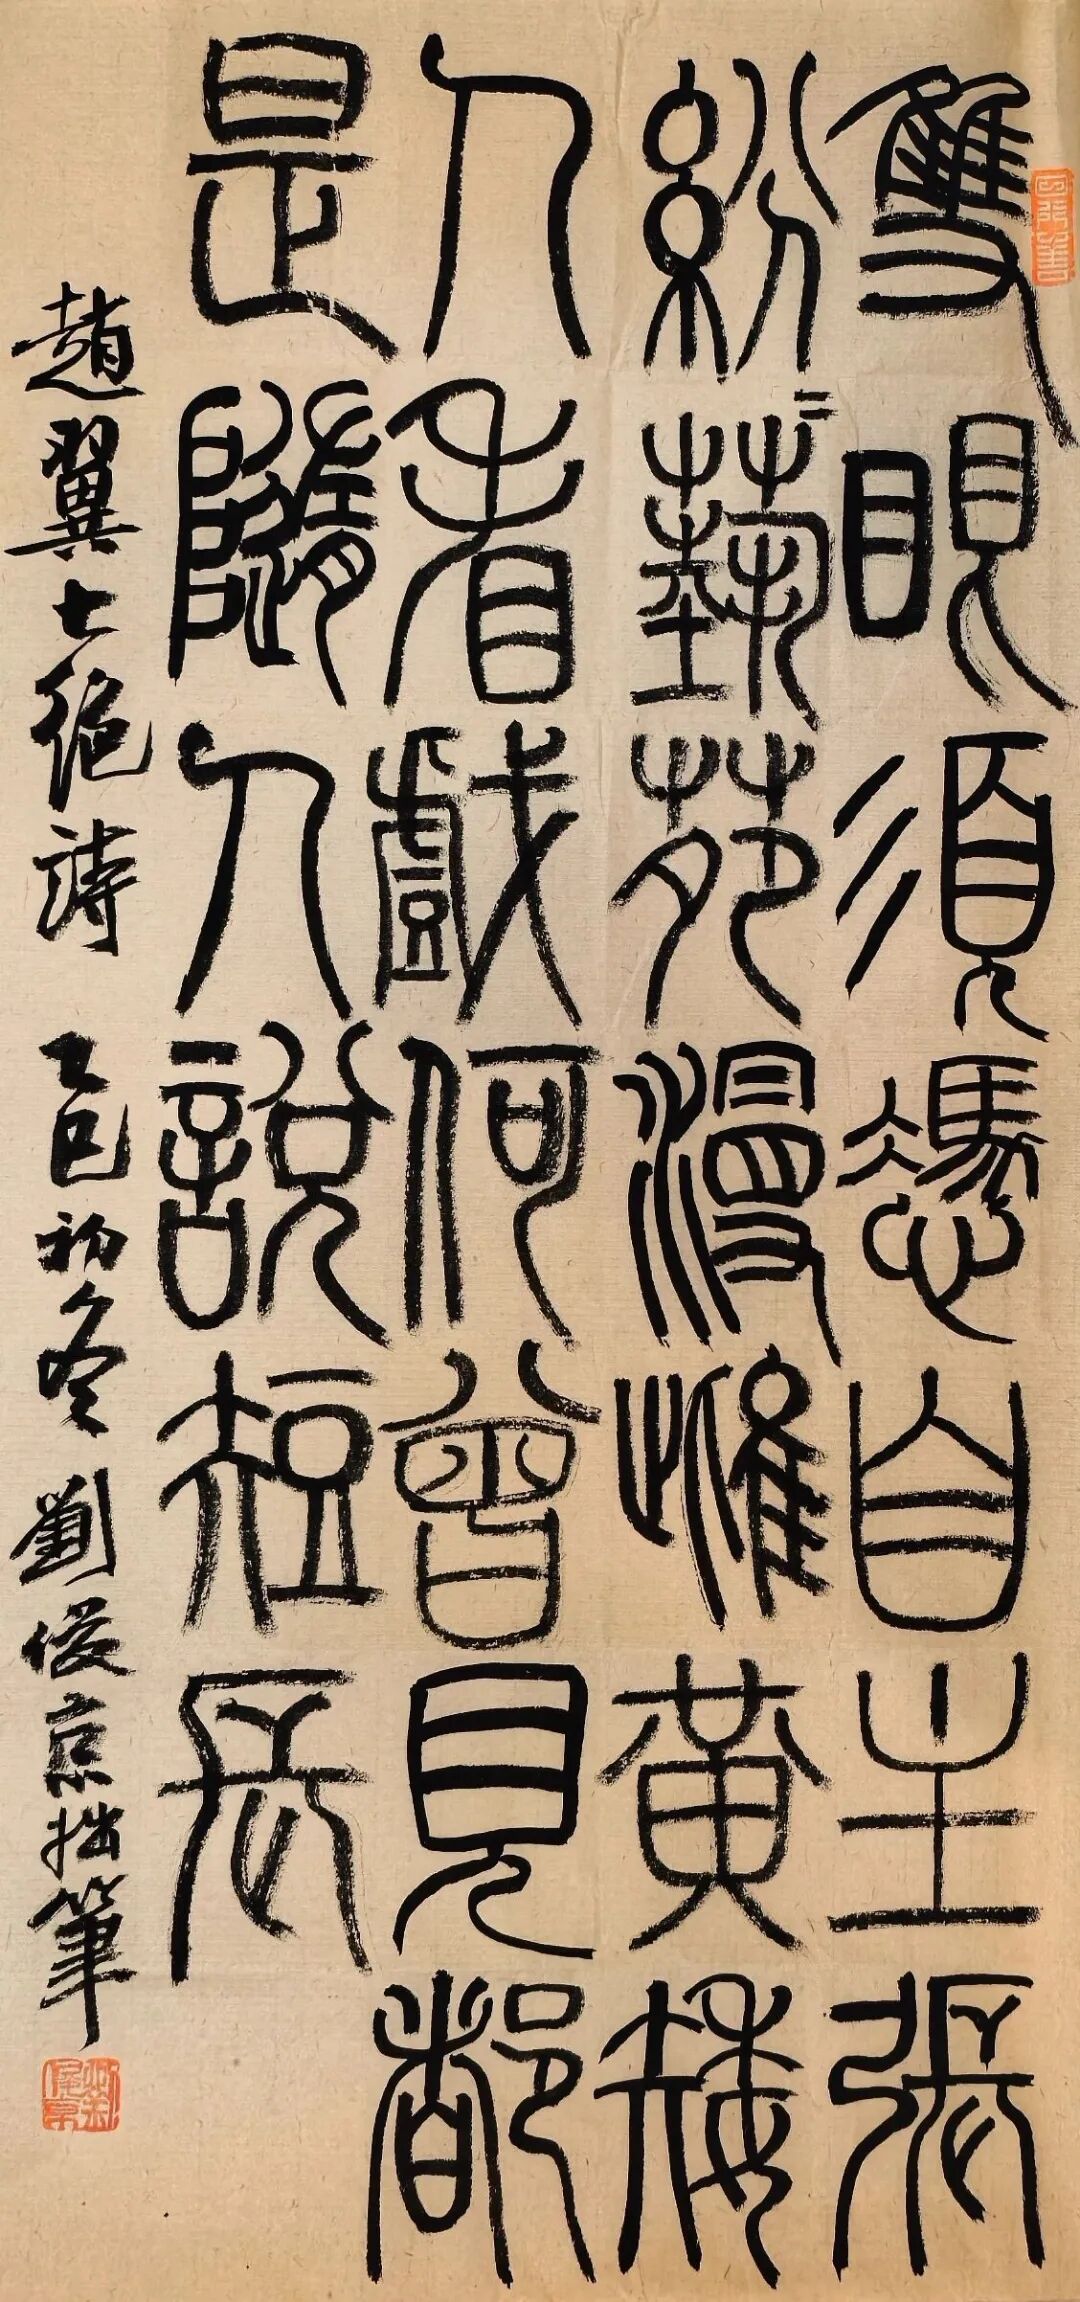 隻眼須憑自主張
紛〻藝苑漫雌黃矮
人看戲何曾見都
是隨人說短長
趙翼七絕詩 乙巳初冬 劉俊京拙筆